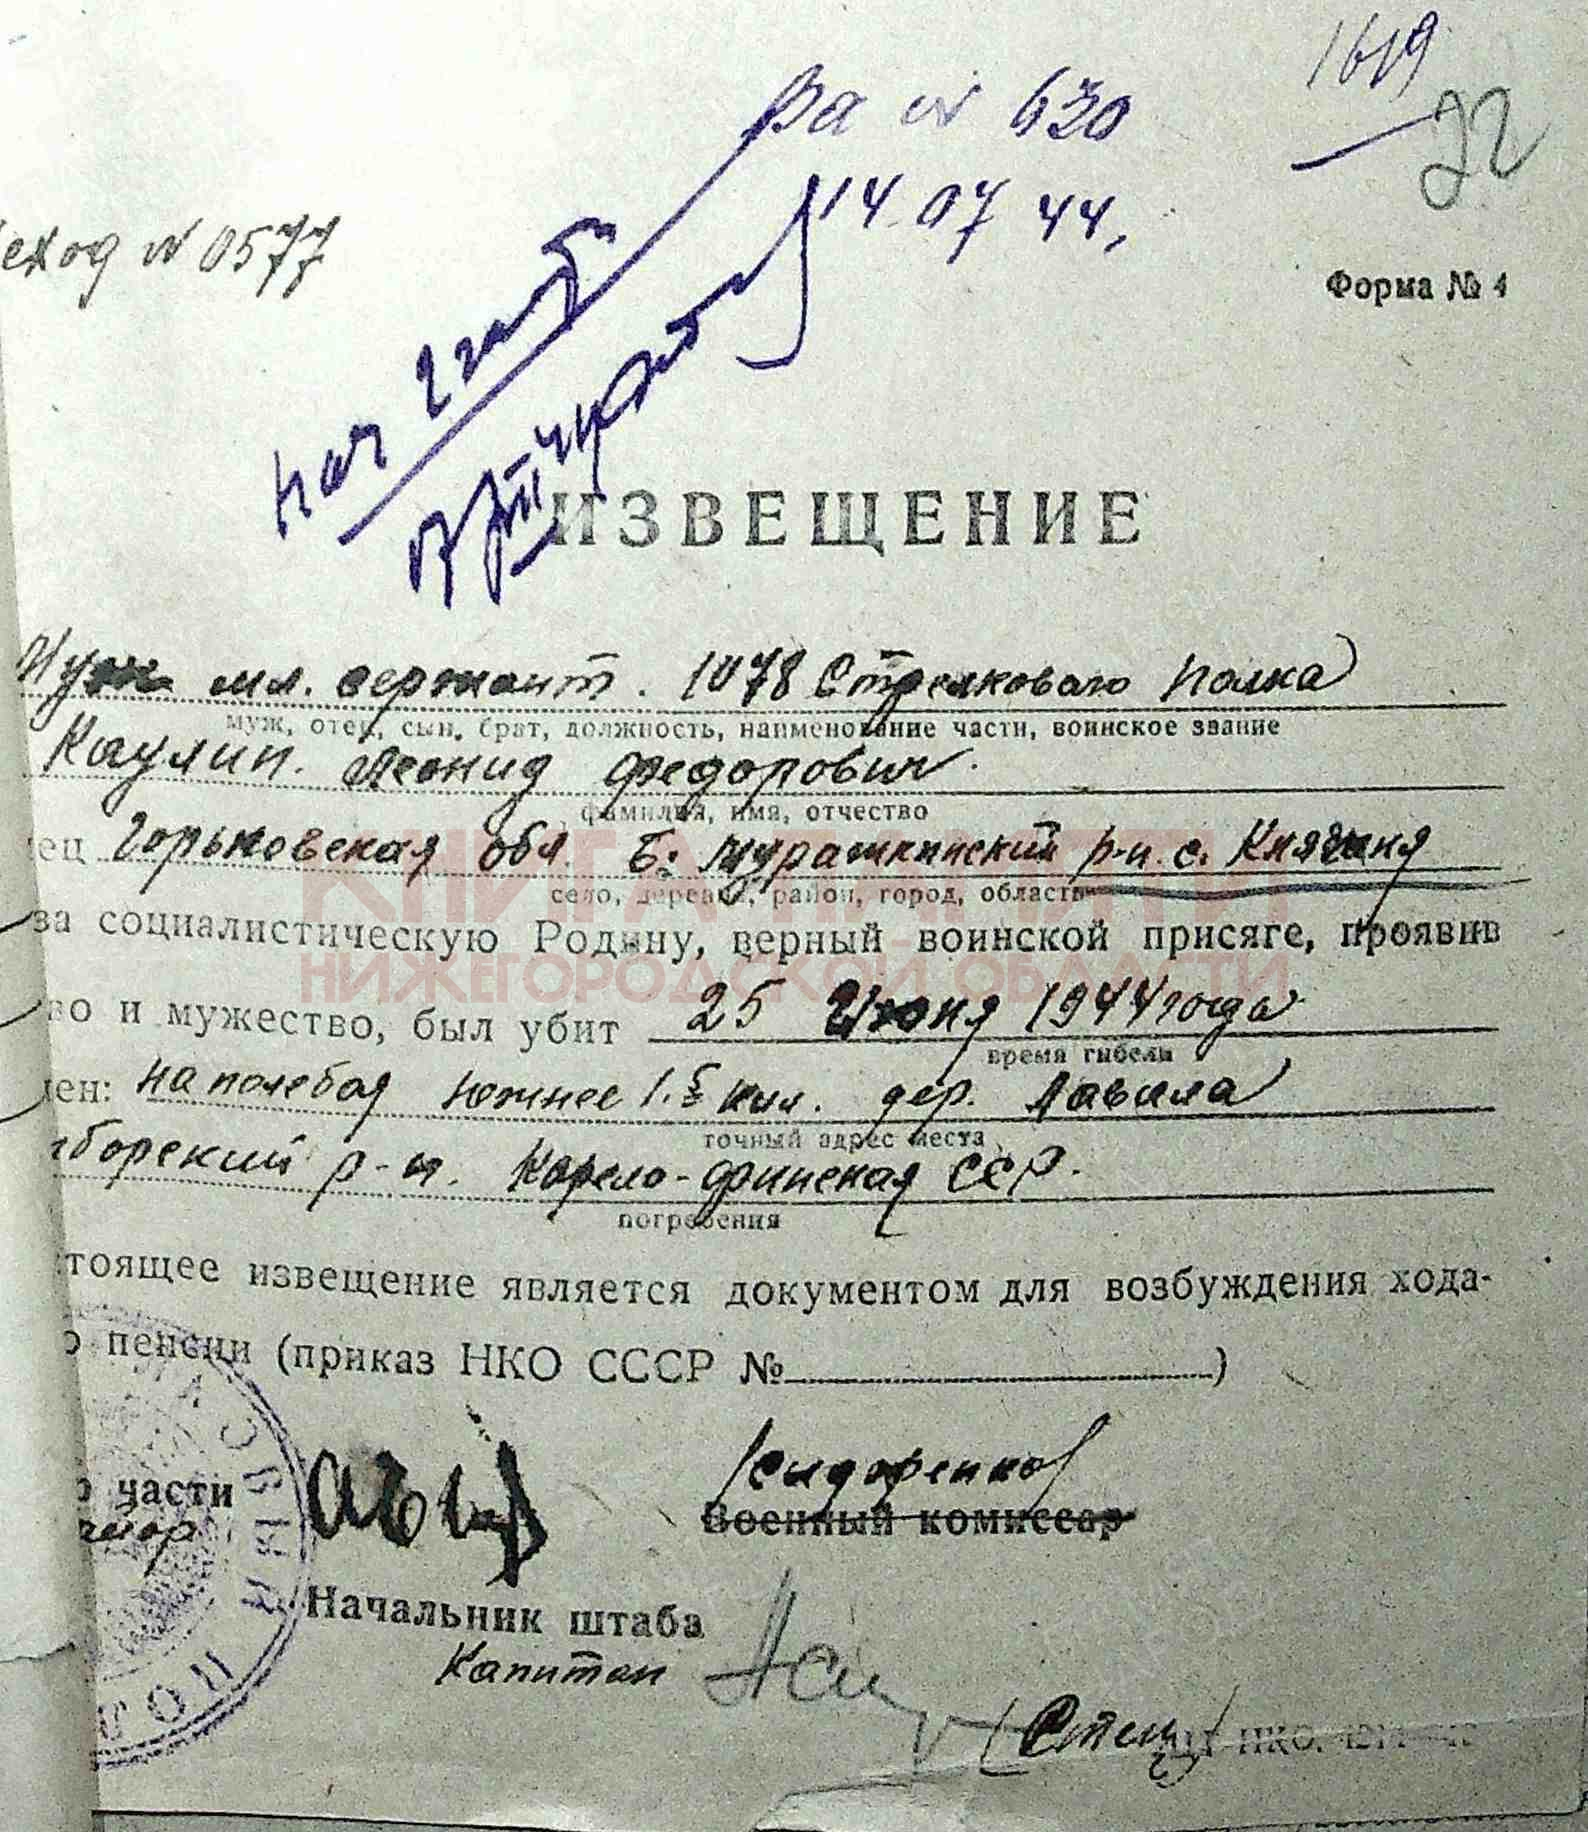 1619
22
За № 630
14.07 44.
еход № 0577
Форма № 4
нач
ИЗВЕЩЕНИЕ
Муж мл. сержант. 1078 Стрелкового полка
муж, отец, сын, брат, должность, наименование части, воинское звание
Каулин. Леонид Федорович.
фамилия, имя, отчество
ец Горьковская обл. Б. Мурашкинский р-н. с. Княгиня
село, деревня, район, город, область
за социалистическую Родину, верный воинской присяге, проявив
во и мужество, был убит 25 Июня 1944 года
время гибели
ен: на поле боя южнее 1.5 кил. дер. Лавала
точный адрес места
боргский р-н. Карело-финская ССР.
погребения
тоящее извещение является документом для возбуждения хода-
о пенсии (приказ НКО СССР №)
КНИГА ПАМЯТИ
НИЖЕГОРОДСКОЙ ОБЛАСТИ
части
Сидоренко
Военный комиссар
Начальник штаба
Капитан